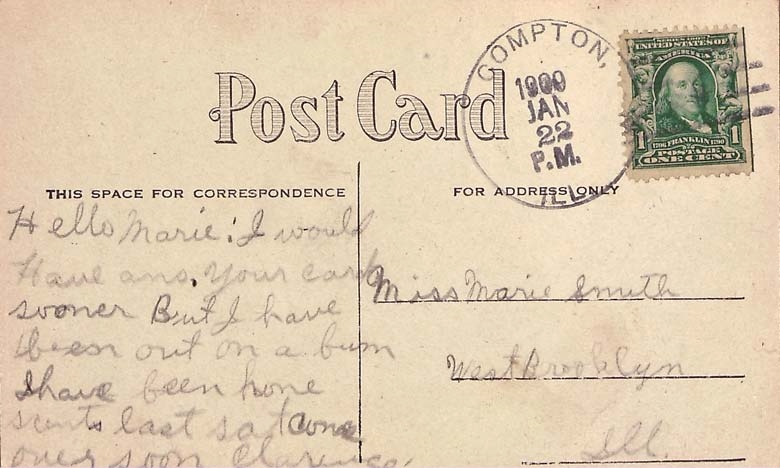 COMPTON,
1909
JAN
22
P.M.
ILL
SERIES 1902
UNITED STATES OF
AMERICA
1 1
1706 FRANKLIN 1790
POSTAGE
ONE CENT
Post Card
THIS SPACE FOR CORRESPONDENCE
FOR ADDRESS ONLY
Hello Marie: I would
Have ans. Your card
sooner But I have
been out on a bum
I have been home
last sat come
over soon Clarence.
Miss Marie Smith
West Brooklyn
Ill.